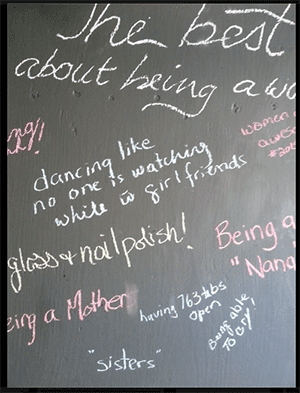 The best
about being a wo
ng!
women a
awes
dancing like
no one is watching
while w girlfriends
gloss & nail polish!
Being a
"Nana
eing a Mother
having 763 tabs
open
Being able
To cry!
"sisters"